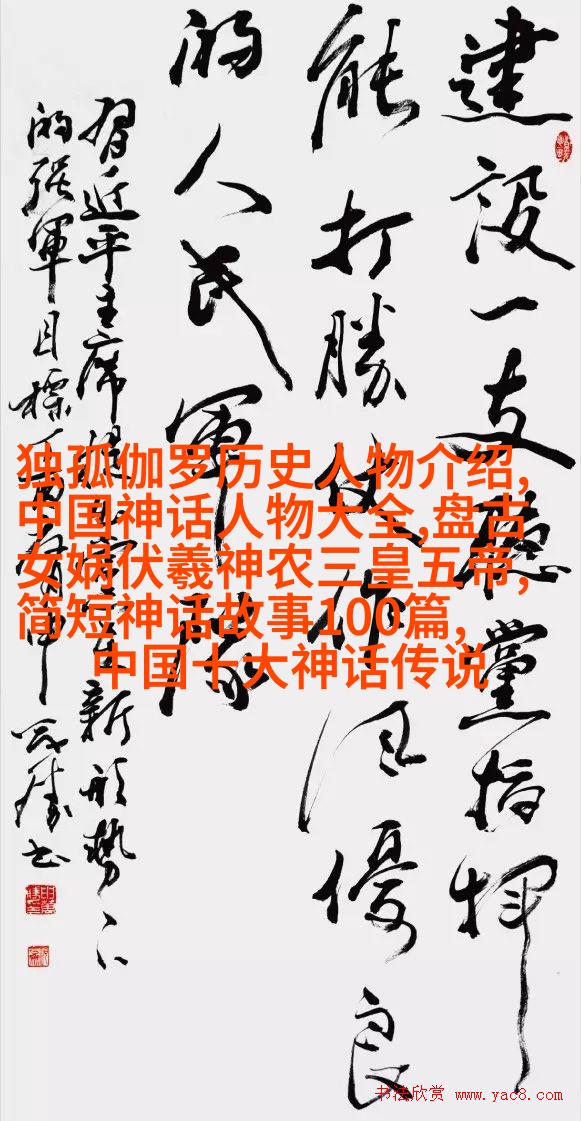 建設一支聽黨指揮
能打勝仗作風優良
的人民軍隊
習近平主席新形勢下
的強軍目標
独孤伽罗历史人物介绍,
中国神话人物大全,盘古
女娲伏羲神农三皇五帝,
简短神话故事100篇,
中国十大神话传说
书法欣赏 www.yac8.com